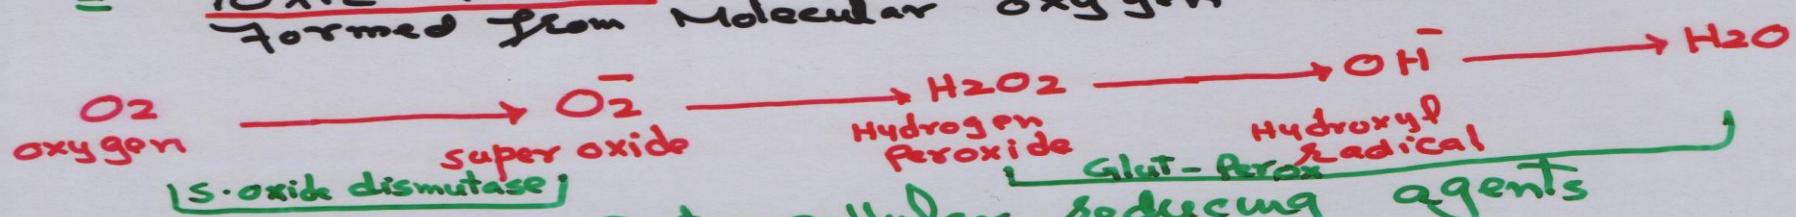 Formed from Molecular oxygen
O2 → O2⁻ → H2O2 → OH⁻ → H2O
oxygen super oxide Hydrogen Peroxide Hydroxyl radical
S.oxide dismutase Glut-Perox
reducing agents